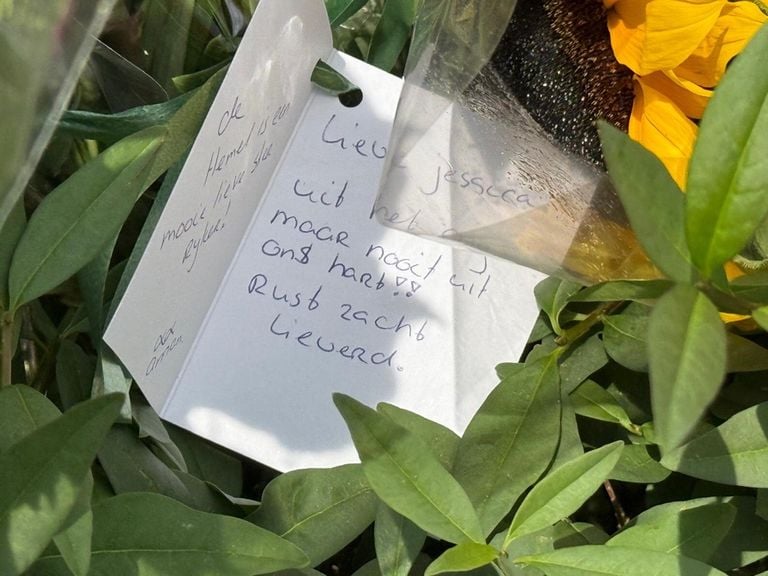 de
Hemel is een
mooie lieve ster
Rijker!
xxx
Lieve Jessica
uit het
maar nooit uit
ons hart!!
Rust zacht
lieverd.